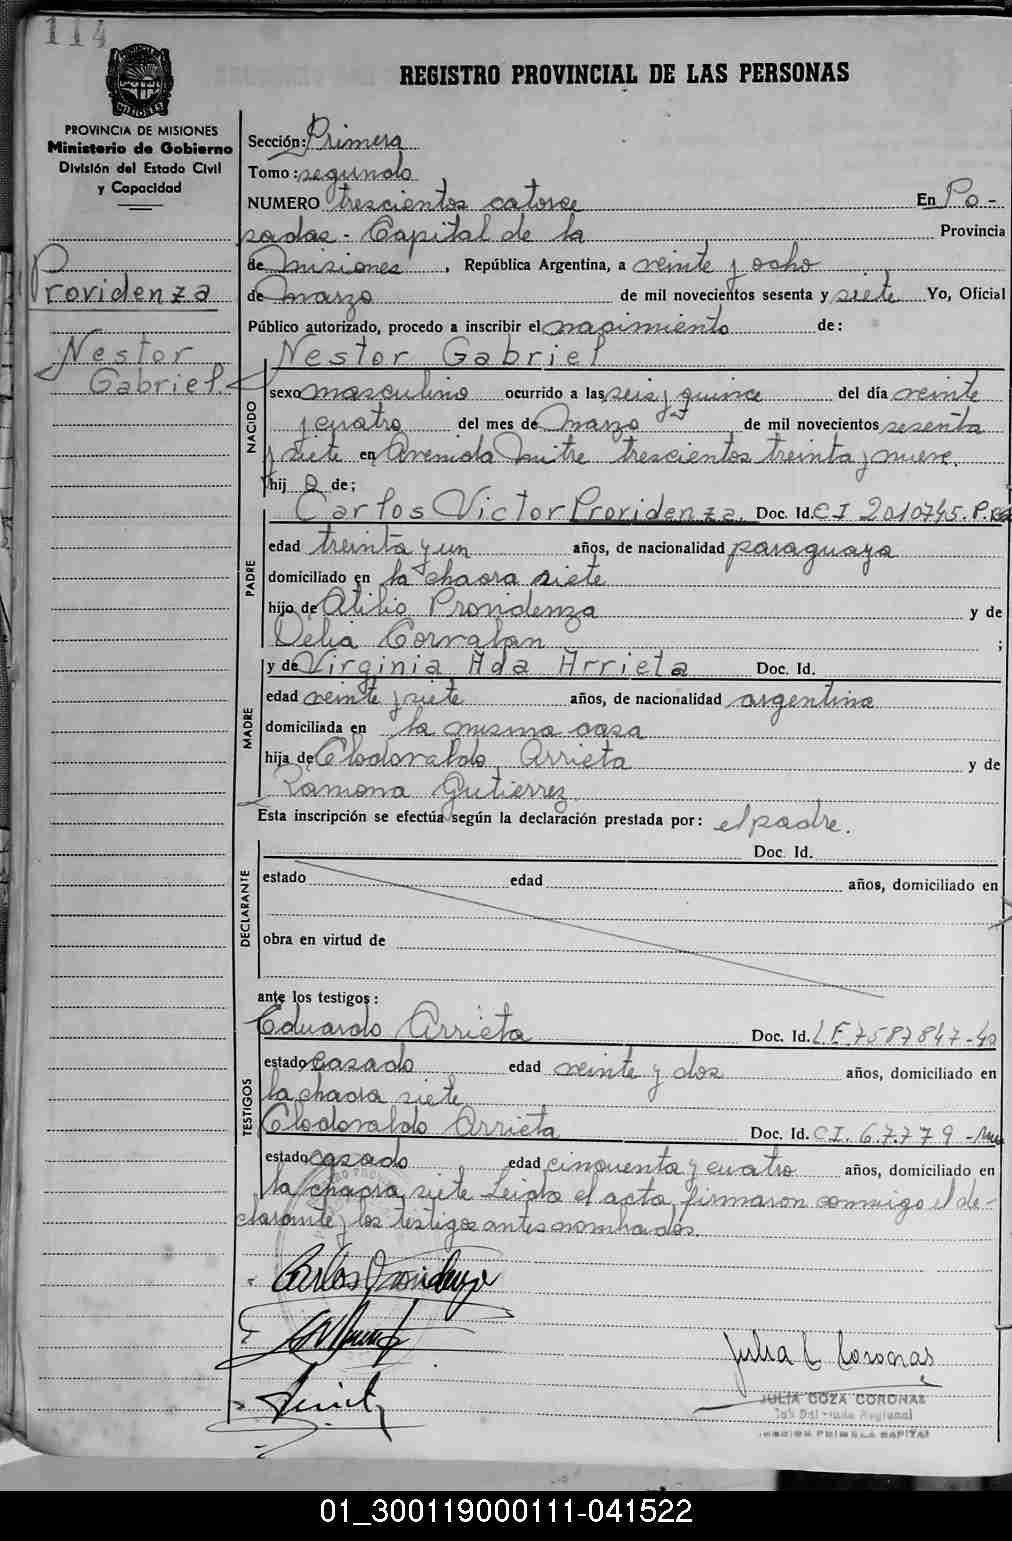 114
REGISTRO PROVINCIAL DE LAS PERSONAS
PROVINCIA DE MISIONES
Ministerio de Gobierno
División del Estado Civil
y Capacidad
Providenza
Nestor
Gabriel.
Sección: Primera
Tomo: segundo
NUMERO trescientos catorce En Po-
sadas - Capital de la Provincia
de Misiones, República Argentina, a veinte y ocho
de Marzo de mil novecientos sesenta y siete Yo, Oficial
Público autorizado, procedo a inscribir el nacimiento de:
Nestor Gabriel
NACIDO
sexo masculino ocurrido a las seis y quince del día veinte
y cuatro del mes de Marzo de mil novecientos sesenta
y siete en Avenida Mitre trescientos treinta y nueve.
hij o de;
PADRE
Carlos Victor Providenza. Doc. Id. CI 2010745.
edad treinta y un años, de nacionalidad paraguaya
domiciliado en la chacra siete
hijo de Atilio Providenza y de
Delia Corvalan ;
MADRE
y de Virginia Ada Arrieta Doc. Id.
edad veinte y siete años, de nacionalidad argentina
domiciliada en la misma casa
hija de Clodovaldo Arrieta y de
Ramona Gutierrez.
Esta inscripción se efectúa según la declaración prestada por: el padre.
DECLARANTE
Doc. Id.
estado edad años, domiciliado en
obra en virtud de
ante los testigos:
TESTIGOS
Eduardo Arrieta Doc. Id. L.E. 7587847-
estado casado edad veinte y dos años, domiciliado en
la chacra siete
Clodovaldo Arrieta Doc. Id. CI. 67.779 -
estado casado edad cincuenta y cuatro años, domiciliado en
la chacra siete Leida el acta, firmaron conmigo el de-
clarante y los testigos antes nombrados.
Carlos Providenza
Julia C Coronas
JULIA COZA CORONAS
Regional
SECCION PRIMERA CAPITAL
01_300119000111-041522